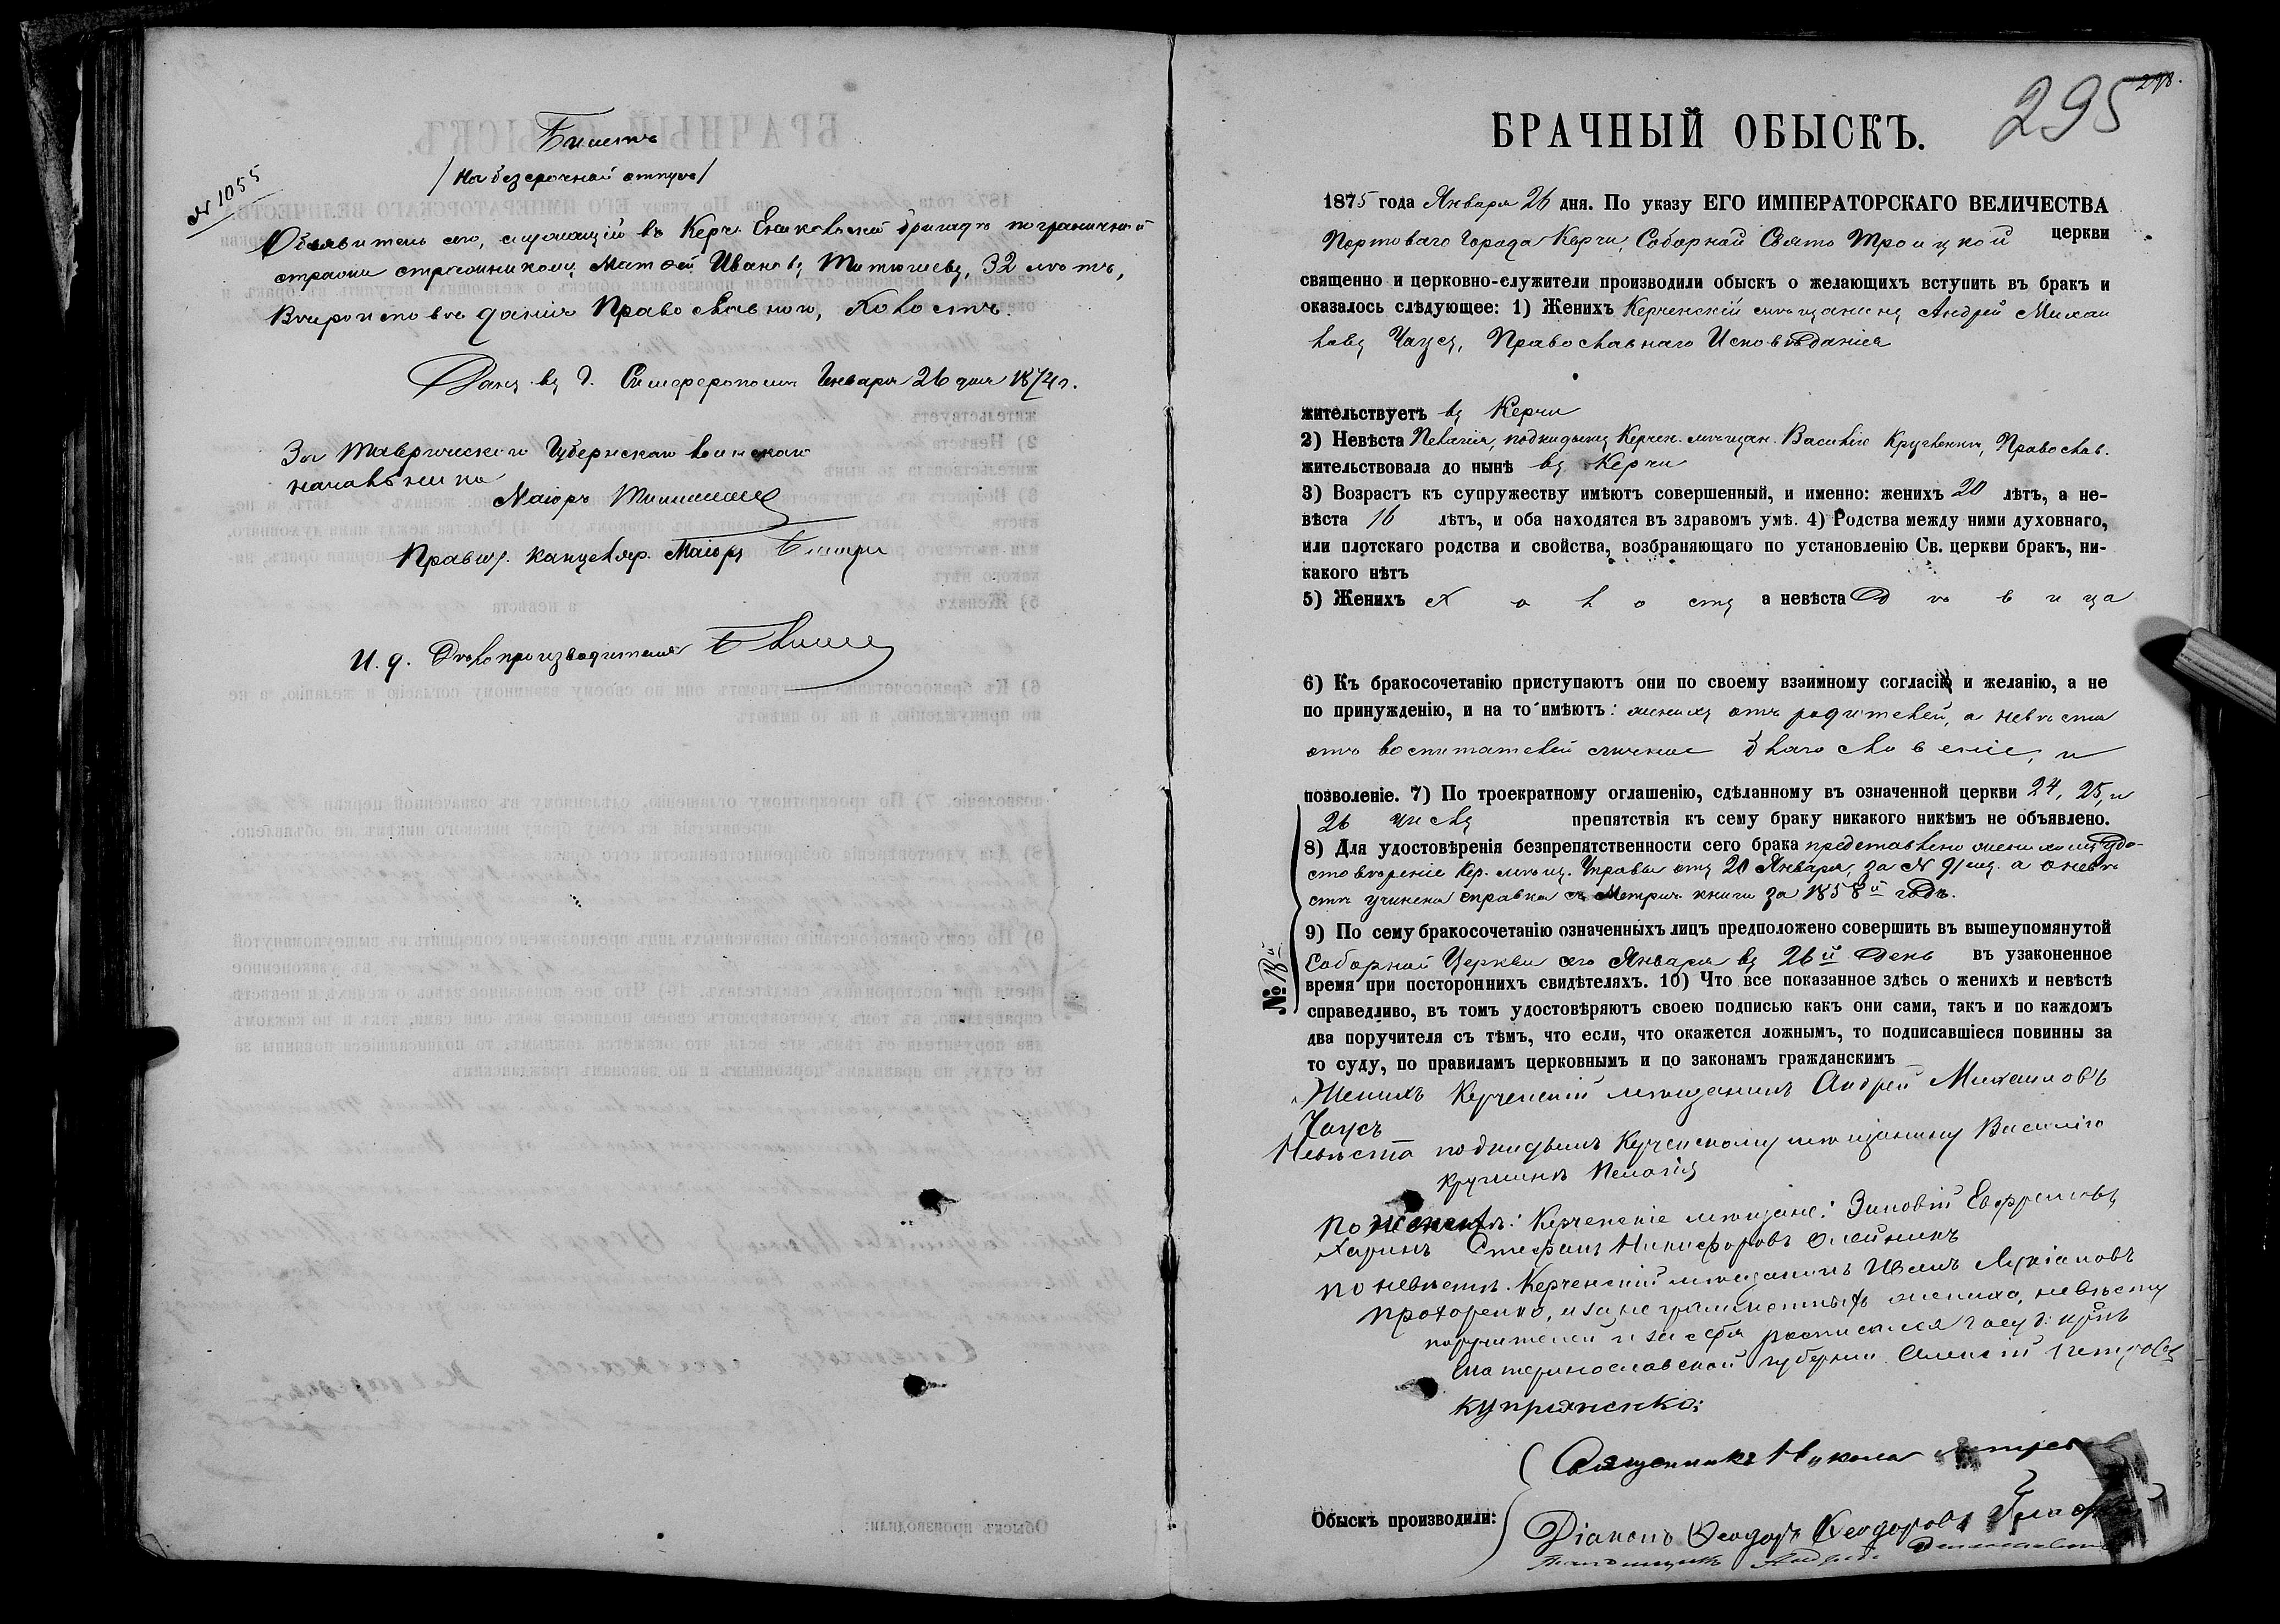 № 1055
Билетъ
/на безсрочной отпускъ/
Объявитель сего, служащій въ Керчь Еникольской бригадѣ пограничной
стражи стражникомъ Матѳей Ивановъ Титюшевъ, 32 лѣтъ,
Вѣроисповѣданія Православнаго, Холостъ.
Данъ въ г. Симферополѣ Января 26 дня 1874 г.
За Таврическаго Губернскаго воинскаго
начальника
Маіоръ
Правит. канцеляр. Маіоръ
И. д. Дѣлопроизводителя
295
БРАЧНЫЙ ОБЫСКЪ.
1875 года Января 26 дня. По указу ЕГО ИМПЕРАТОРСКАГО ВЕЛИЧЕСТВА
Портоваго Города Керчи, Соборной Свято Троицкой церкви
священно и церковно-служители производили обыскъ о желающихъ вступить въ бракъ и
оказалось слѣдующее: 1) Женихъ Керченскій мѣщанинъ Андрей Михаи
ловъ Чаусъ, Православнаго Исповѣданія
жительствуетъ въ Керчи
2) Невѣста Пелагія, подкидышъ Керчен. мѣщан. Василію Круглень, Православ.
жительствовала до нынѣ въ Керчи
3) Возрастъ къ супружеству имѣютъ совершенный, и именно: женихъ 20 лѣтъ, а не-
вѣста 16 лѣтъ, и оба находятся въ здравомъ умѣ. 4) Родства между ними духовнаго,
или плотскаго родства и свойства, возбраняющаго по установленію Св. церкви бракъ, ни-
какого нѣтъ
5) Женихъ Холостъ а невѣста Дѣвица
6) Къ бракосочетанію приступаютъ они по своему взаимному согласію и желанію, а не
по принужденію, и на то имѣютъ: женихъ отъ родителей, а невѣста
отъ воспитателей личное благословеніе, и
позволеніе. 7) По троекратному оглашенію, сдѣланному въ означенной церкви 24, 25, и
26 числъ препятствія къ сему браку никакого никѣмъ не объявлено.
8) Для удостовѣренія безпрепятственности сего брака представлено женихомъ Удо-
стовѣреніе Кер. мѣщ. Управы отъ 20 Января, за № 91 а о невѣ
стѣ учинена справка съ Метрич. книги за 1858й годъ.
9) По сему бракосочетанію означенныхъ лицъ предположено совершить въ вышеупомянутой
Соборной Церкви сего Января въ 26й День въ узаконенное
время при постороннихъ свидѣтеляхъ. 10) Что все показанное здѣсь о женихѣ и невѣстѣ
справедливо, въ томъ удостовѣряютъ своею подписью какъ они сами, такъ и по каждомъ
два поручителя съ тѣмъ, что если, что окажется ложнымъ, то подписавшіеся повинны за
то суду, по правиламъ церковнымъ и по законамъ гражданскимъ
№ 18й
Женихъ Керченскій мѣщанинъ Андрей Михаиловъ
Чаусъ
Невѣста подкидышъ Керченскому мѣщанину Василію
Круглень Пелагія
По женихѣ: Керченскіе мѣщане: Зиновій Евфремовъ
Харинъ Стефанъ Никифоровъ Олейникъ
по невѣстѣ. Керченскій мѣщанинъ Иванъ Лукіановъ
Прохоренко, и за не грамотныхъ жениха, невѣсту
поручителей и за себя росписался госуд: крѣнъ
Екатеринославской губерніи Алексій Петровъ
Купріяненко:
Обыскъ производили:
Священникъ Никола
Діаконъ Ѳеодоръ Ѳеодоровъ